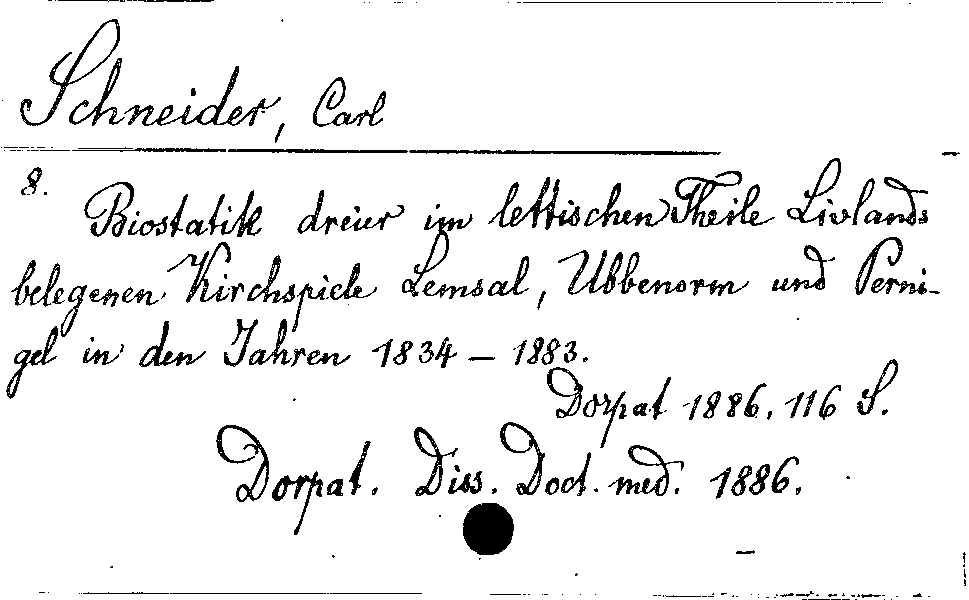 Schneider, Carl
8.
Biostatik dreier im lettischen Theile Livlands
belegenen Kirchspiele Lemsal, Ubbenorm und Perni-
gel in den Jahren 1834 – 1883.
Dorpat 1886. 116 S.
Dorpat. Diss. Doct. med. 1886.